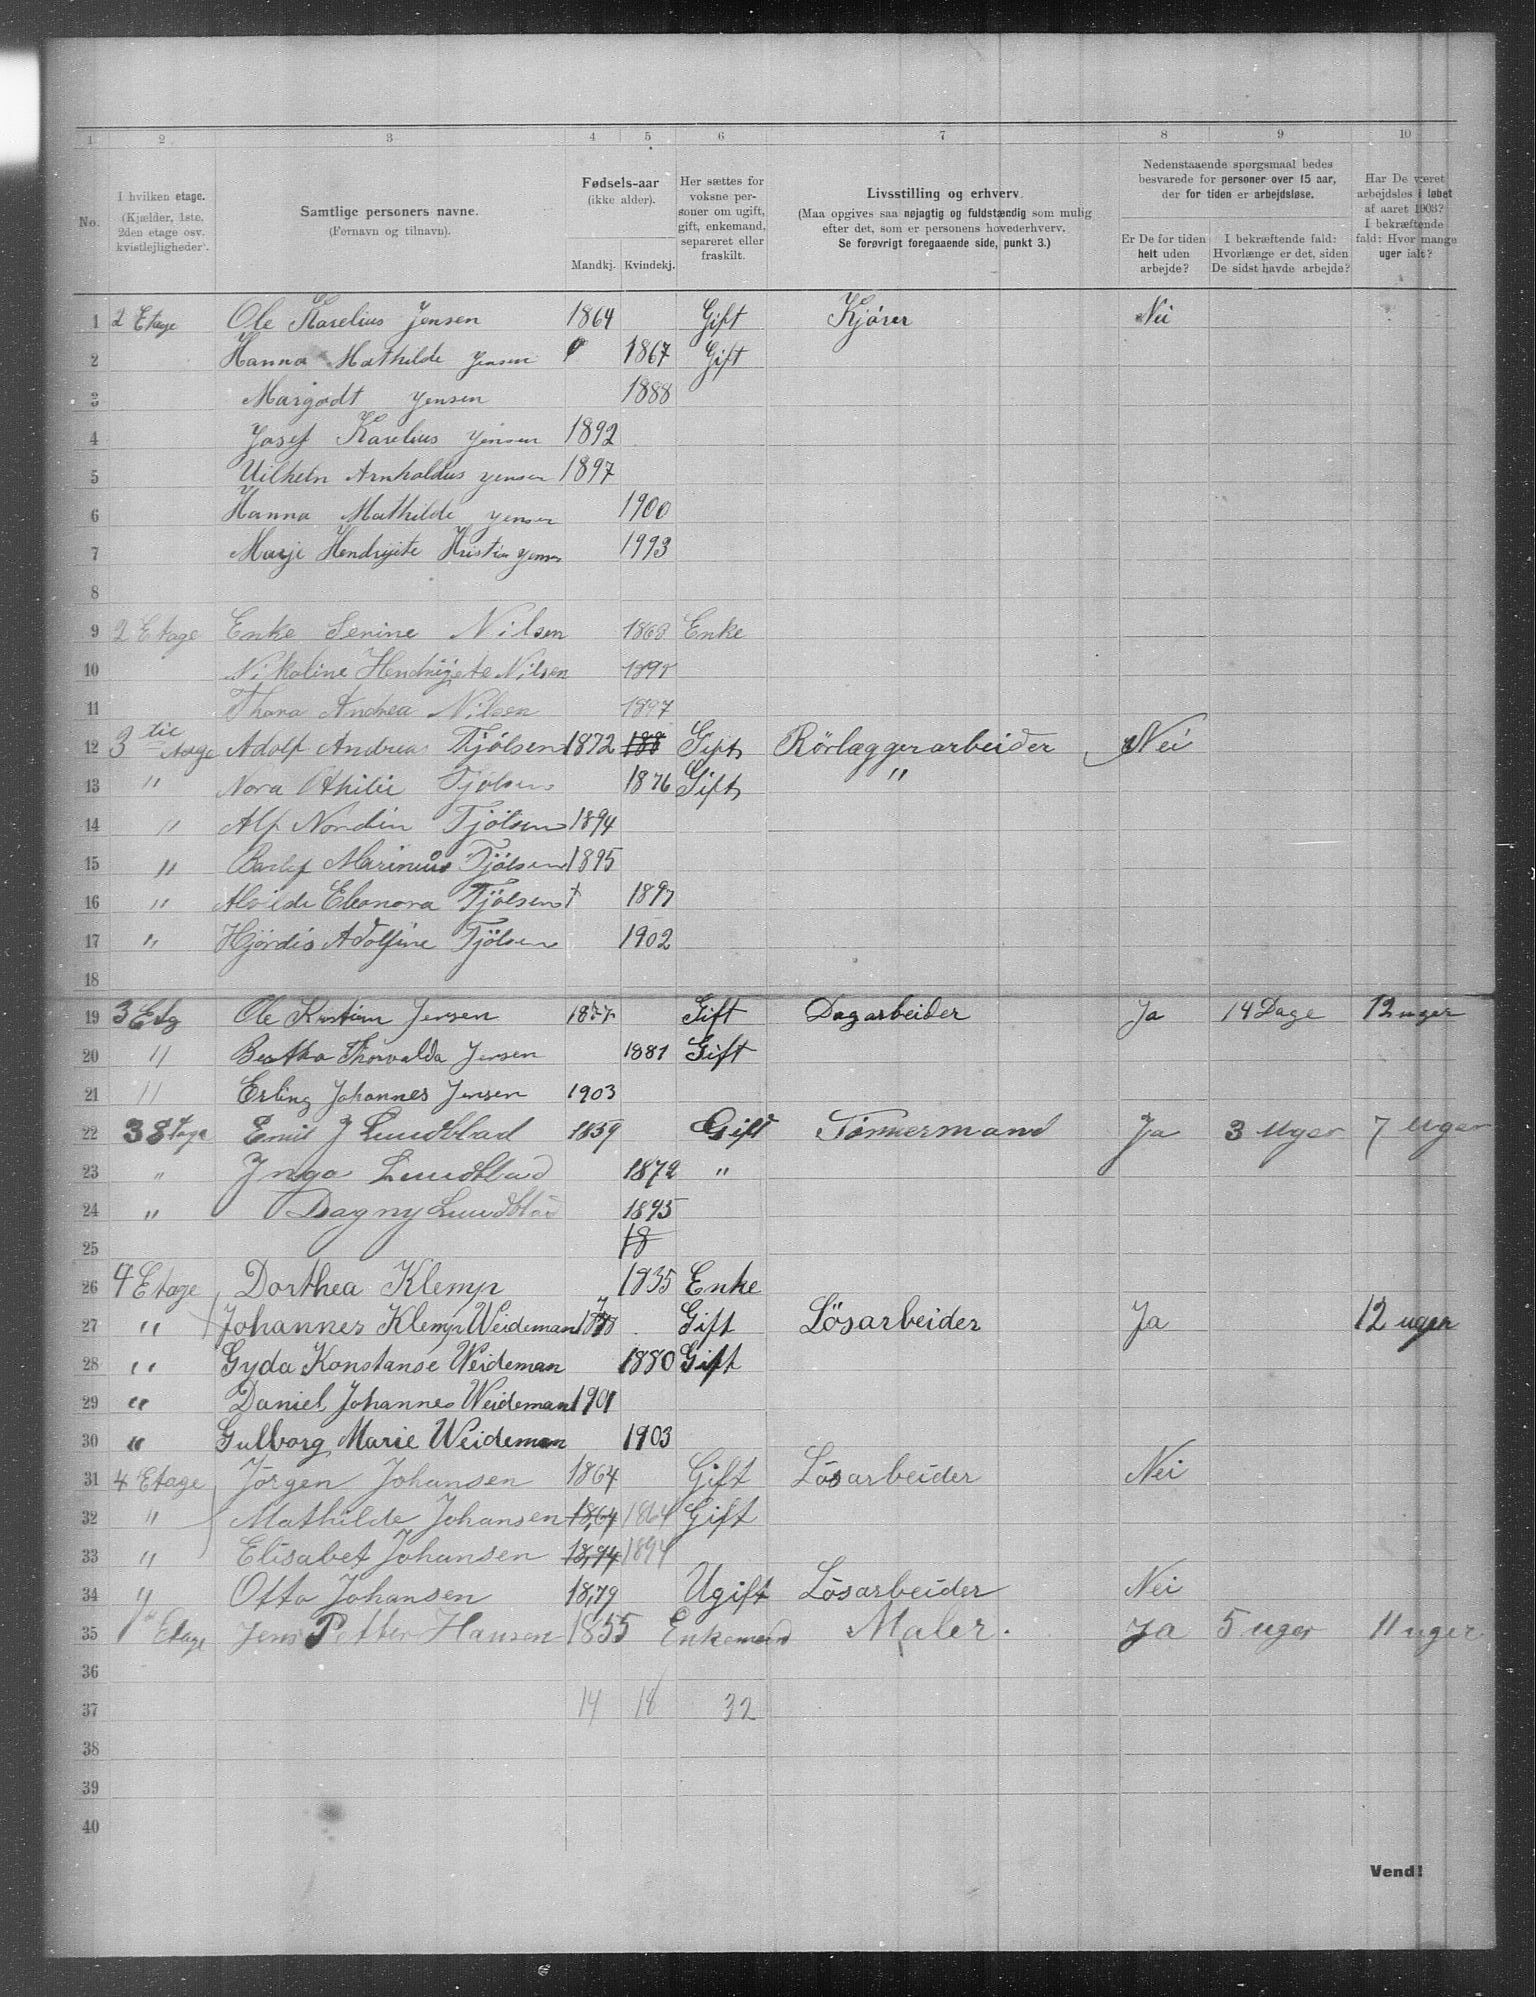 1 2 3 4 5 6 7 8 9 10
No. I hvilken etage. (Kjælder, 1ste, 2den etage osv. kvistlejligheder). Samtlige personers navne. (Fornavn og tilnavn). Fødsels-aar (ikke alder). Mandkj. Kvindekj. Her sættes for voksne personer om ugift, gift, enkemand, separeret eller fraskilt. Livsstilling og erhverv. (Maa opgives saa nøjagtig og fuldstændig som mulig efter det, som er personens hovederhverv. Se forøvrigt foregaaende side, punkt 3.) Nedenstaaende spørgsmaal bedes besvarede for personer over 15 aar, der for tiden er arbejdsløse. Er De for tiden helt uden arbejde? I bekræftende fald: Hvorlænge er det, siden De sidst havde arbejde? Har De været arbejdsløs i løbet af aaret 1903? I bekræftende fald: Hvor mange uger ialt?
1 2 Etage Ole Karelius Jensen 1864 Gift Kjører Nei
2 Hanna Mathilde Jensen 1867 Gift
3 Margodt Jensen 1888
4 Josef Karelius Jensen 1892
5 Vilhelm Arnholdus Jensen 1897
6 Hanna Mathilde Jensen 1900
7 Marje Hendrijete Kristia Jensen 1993
8
9 2 Etage Enke Serine Nilsen 1868 Enke
10 Nikoline Hendrijete Nilsen
11 Thora Andrea Nilsen 1897
12 3 Adolf Andreas Tjölsen 1872 188 Gift Rörlæggerarbeider Nei
13 " Nora Othilie Tjölsen 1876 Gift "
14 " Alf Nordin Tjölsen 1894
15 " Marinius Tjölsen 1895
16 " Alvilde Eleonora Tjölsen 1897
17 " Hjördis Adolfine Tjölsen 1902
18
19 3 Etg Ole Kristian Jensen 1877 Gift Dagarbeider Ja 14 Dage 12 uger
20 " Bertha Thorvalda Jensen 1881 Gift
21 " Erling Johannes Jensen 1903
22 3 Etage Emil J Lundblad 1859 Gift Tömmermand Ja 3 Uger 7 Uger
23 " Inga Lundblad 1872 "
24 " Dagny Lundblad 1895
25 18
26 4 Etage Dorthea Klemp 1835 Enke
27 " Johannes Klemp Weideman 1878 Gift Lösarbeider Ja 12 uger
28 " Gyda Konstanse Weideman 1880 Gift
29 " Daniel Johannes Weideman 1901
30 " Gulborg Marie Weideman 1903
31 4 Etage Jörgen Johansen 1864 Gift Lösarbeider Nei
32 " Mathilde Johansen 1864 1864 Gift
33 " Elisabet Johansen 1894 1894
34 " Otto Johansen 1879 Ugift Lösarbeider Nei
35 Etage Jens Petter Hansen 1855 Enkemand Maler. Ja 5 uger 11 uger
36
37 14 18 32
38
39
40
Vend!